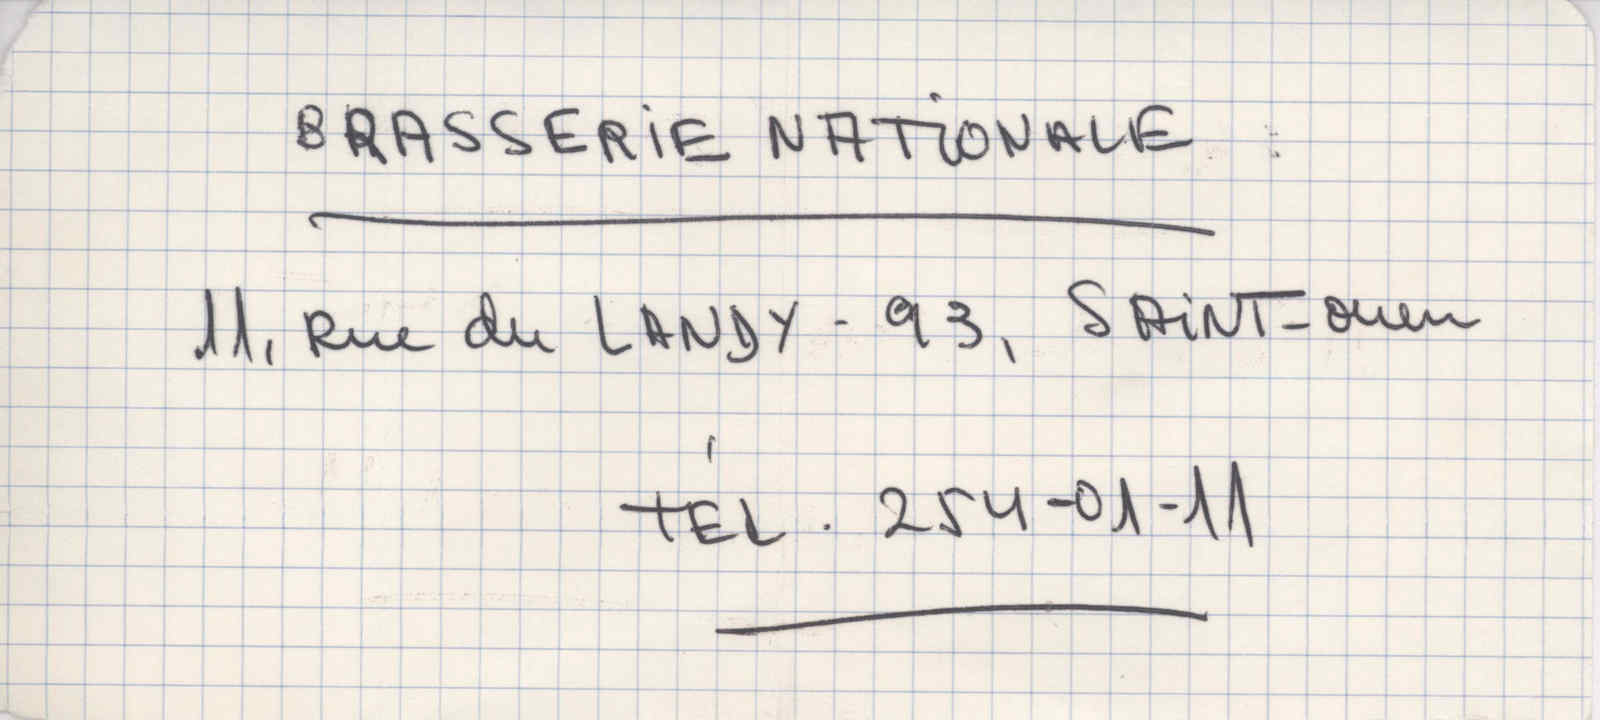 BRASSERiE NATiONALE :
11, Rue du LANDY - 93, SAiNT-ouen
TÉL. 254-01-11